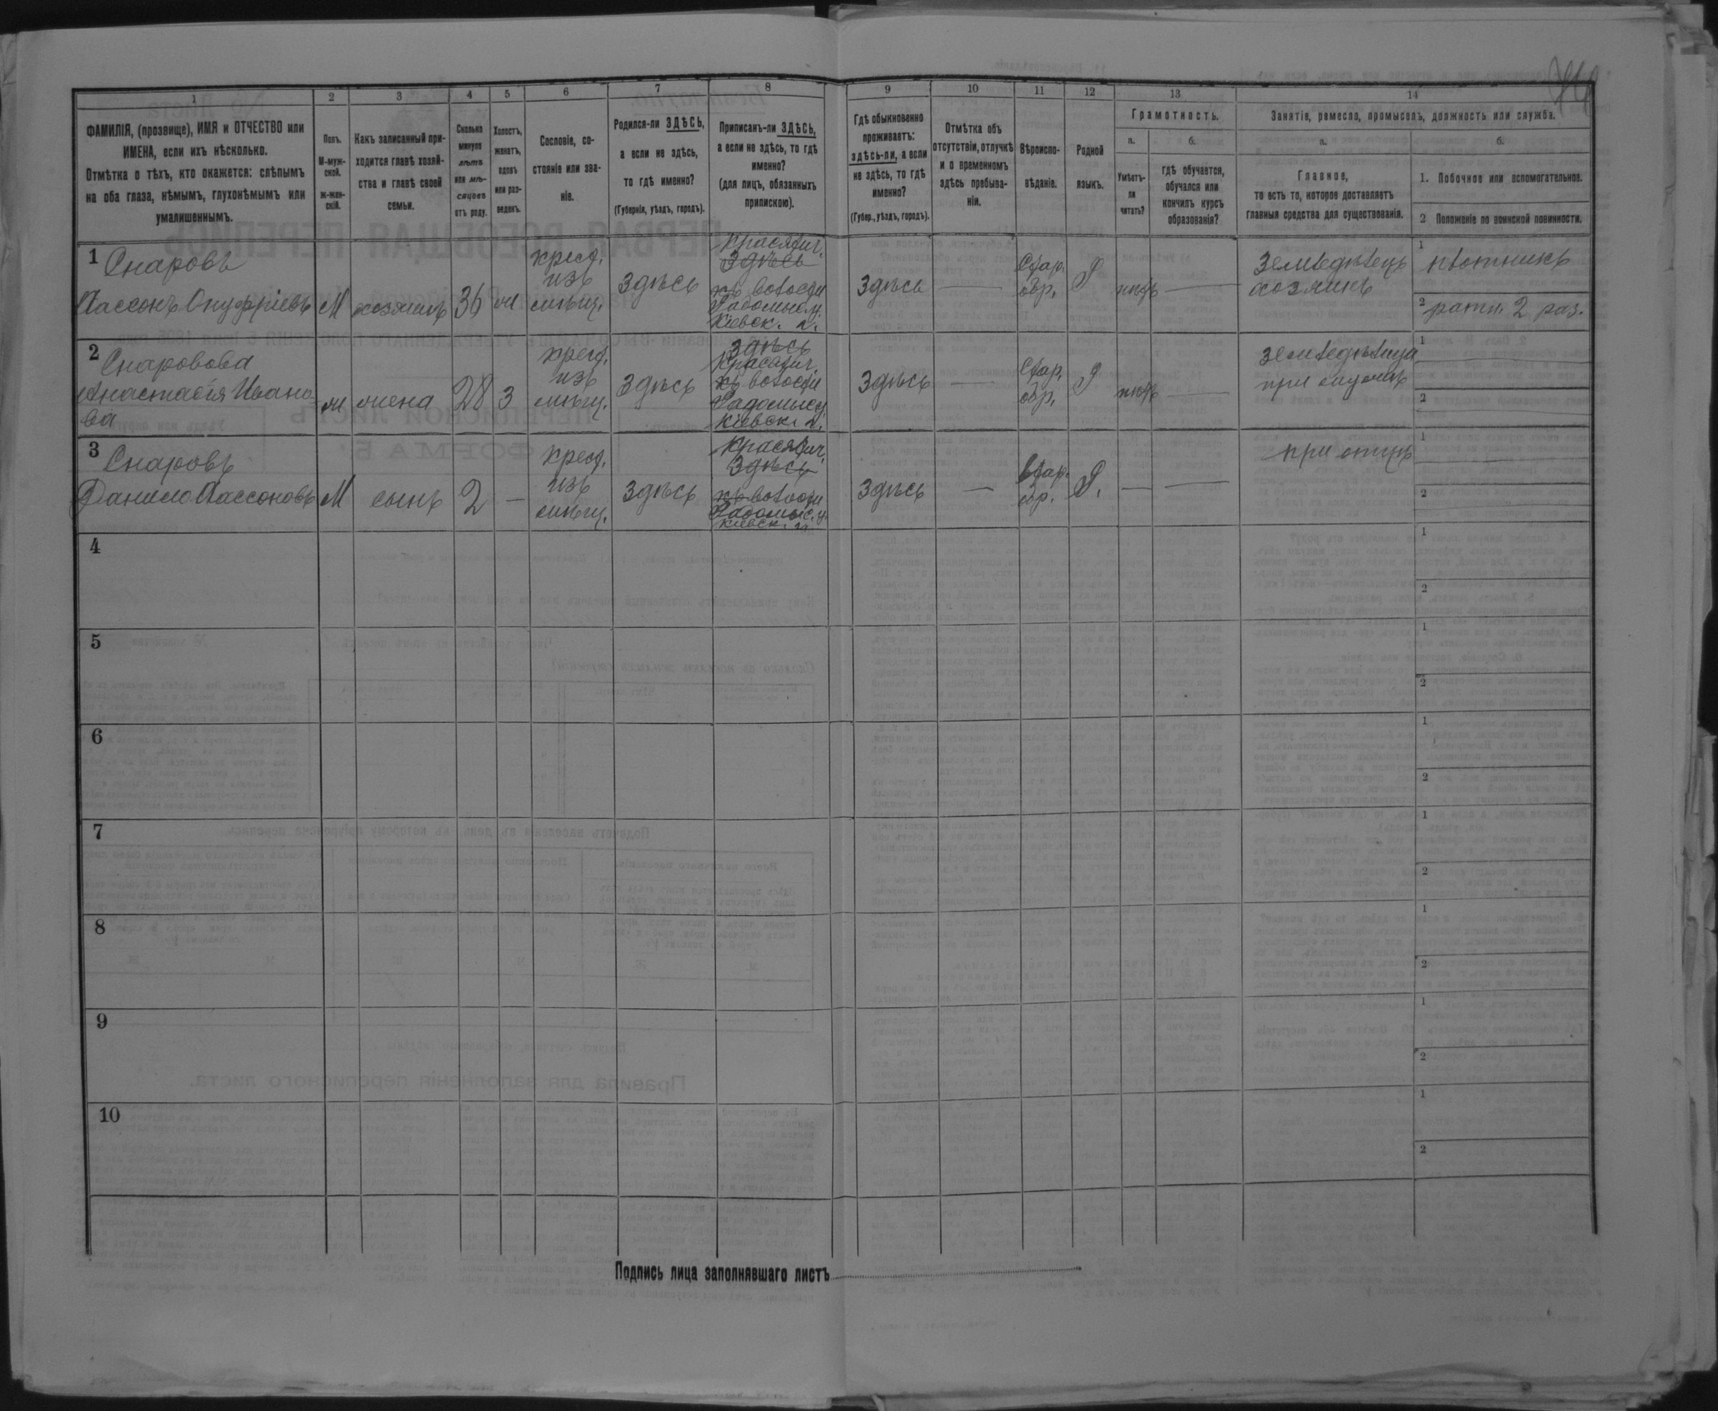 1
2
3
4
5
6
7
8
9
10
11
12
13
14
ФАМИЛІЯ, (прозвище), ИМЯ и ОТЧЕСТВО или
ИМЕНА, если ихъ нѣсколько.
Отмѣтка о тѣхъ, кто окажется: слѣпымъ
на оба глаза, нѣмымъ, глухонѣмымъ или
умалишеннымъ.
Полъ.
М-муж-
ской.
ж-жен-
скій.
Какъ записанный при-
ходится главѣ хозяй-
ства и главѣ своей
семьи.
Сколько
минуло
лѣтъ
или мѣ-
сяцевъ
отъ роду.
Холостъ,
женатъ,
вдовъ
или раз-
веденъ.
Сословіе, со-
стояніе или зва-
ніе.
Родился-ли ЗДѢСЬ,
а если не здѣсь,
то гдѣ именно?
(Губернія, уѣздъ, городъ).
Приписанъ-ли ЗДѢСЬ,
а если не здѣсь, то гдѣ
именно?
(для лицъ, обязанныхъ
припискою).
Гдѣ обыкновенно
проживаетъ:
здѣсь-ли, а если
не здѣсь, то гдѣ
именно?
(Губер., уѣздъ, городъ).
Отмѣтка объ
отсутствіи, отлучкѣ
и о временномъ
здѣсь пребыва-
ніи.
Вѣроиспо-
вѣданіе.
Родной
языкъ.
Грамотность.
а.
Умѣетъ-
ли
читать?
б.
гдѣ обучается,
обучался или
кончилъ курсъ
образованія?
Занятіе, ремесло, промыселъ, должность или служба.
а.
Главное,
то есть то, которое доставляетъ
главныя средства для существованія.
б.
1. Побочное или вспомогательное.
2 Положеніе по воинской повинности.
1 Снаровъ
Пассонъ Онуфріевъ
М
хозяинъ
36
ж
крест.
изъ
мѣщ.
Здѣсь
Здѣсь
волости
Радомыс. у.
Кіевск. г.
Здѣсь
—
Стар.
обр.
Р
нѣтъ
—
Земледѣлецъ
хозяинъ
1 плотникъ
2 ратн. 2 раз.
2 Снаровова
Анастасія Ивано
ва
ж
жена
28
З
крест.
изъ
мѣщ.
Здѣсь
Здѣсь
волости
Радомыс. у.
Кіевск. г.
Здѣсь
—
Стар.
обр.
Р
нѣтъ
—
земледѣлица
при мужѣ
1
2
3 Снаровъ
Данило Пассоновъ
М
сынъ
2
—
крест.
изъ
мѣщ.
Здѣсь
Здѣсь
волости
Радомыс. у.
Кіевск. г.
Здѣсь
—
Стар.
обр.
Р.
—
—
при отцѣ
1
2
4
1
2
5
1
2
6
1
2
7
1
2
8
1
2
9
1
2
10
1
2
Подпись лица заполнявшаго листъ